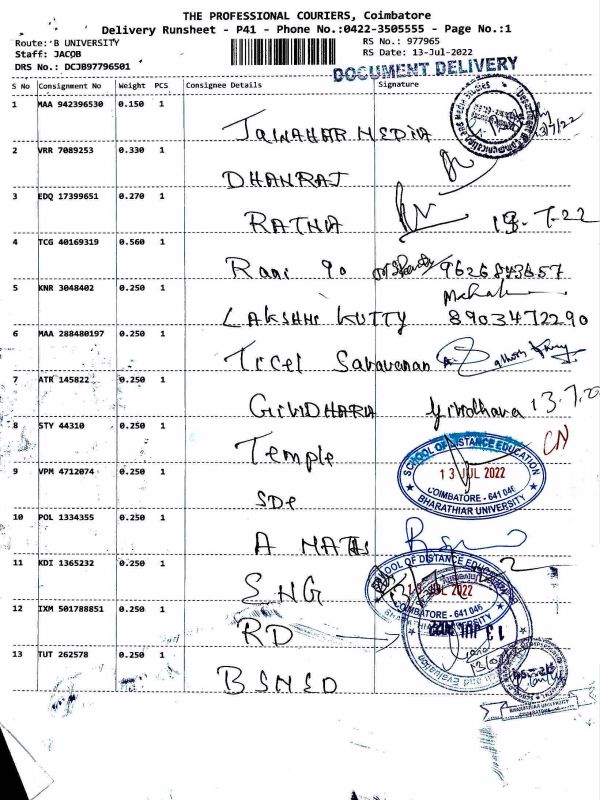 THE PROFESSIONAL COURIERS, Coimbatore
Delivery Runsheet - P41 - Phone No.:0422-3505555 - Page No.:1
Route: B UNIVERSITY
RS No.: 977965
Staff: JACOB
RS Date: 13-Jul-2022
DRS No.: DCJB97796501
DOCUMENT DELIVERY
S No Consignment No Weight PCS Consignee Details Signature
1 MAA 942396530 0.150 1
JAWAHAR MEDIA
13/7/22
2 VRR 7089253 0.330 1
DHANRAJ
3 EDQ 17399651 0.270 1
RATNA
4 TCG 40169319 0.560 1
Rani
5 KNR 3048402 0.250 1
LAKSHMI KUTTY 8903472290
6 MAA 288480197 0.250 1
Ticel Saravanan
7 ATR 145822 0.250 1
GIRIDHARA
8 STY 44310 0.250 1
Temple
CN
SCHOOL OF DISTANCE EDUCATION
13 JUL 2022
COIMBATORE - 641 046
BHARATHIAR UNIVERSITY
9 VPM 4712074 0.250 1
SDE
10 POL 1334355 0.250 1
A MATHS
11 KDI 1365232 0.250 1
SNG
SCHOOL OF DISTANCE EDUCATION
13 JUL 2022
COIMBATORE - 641 046
12 IXM 501788851 0.250 1
RD
13 JUL 2022
13 TUT 262578 0.250 1
BHARATHIAR UNIVERSITY